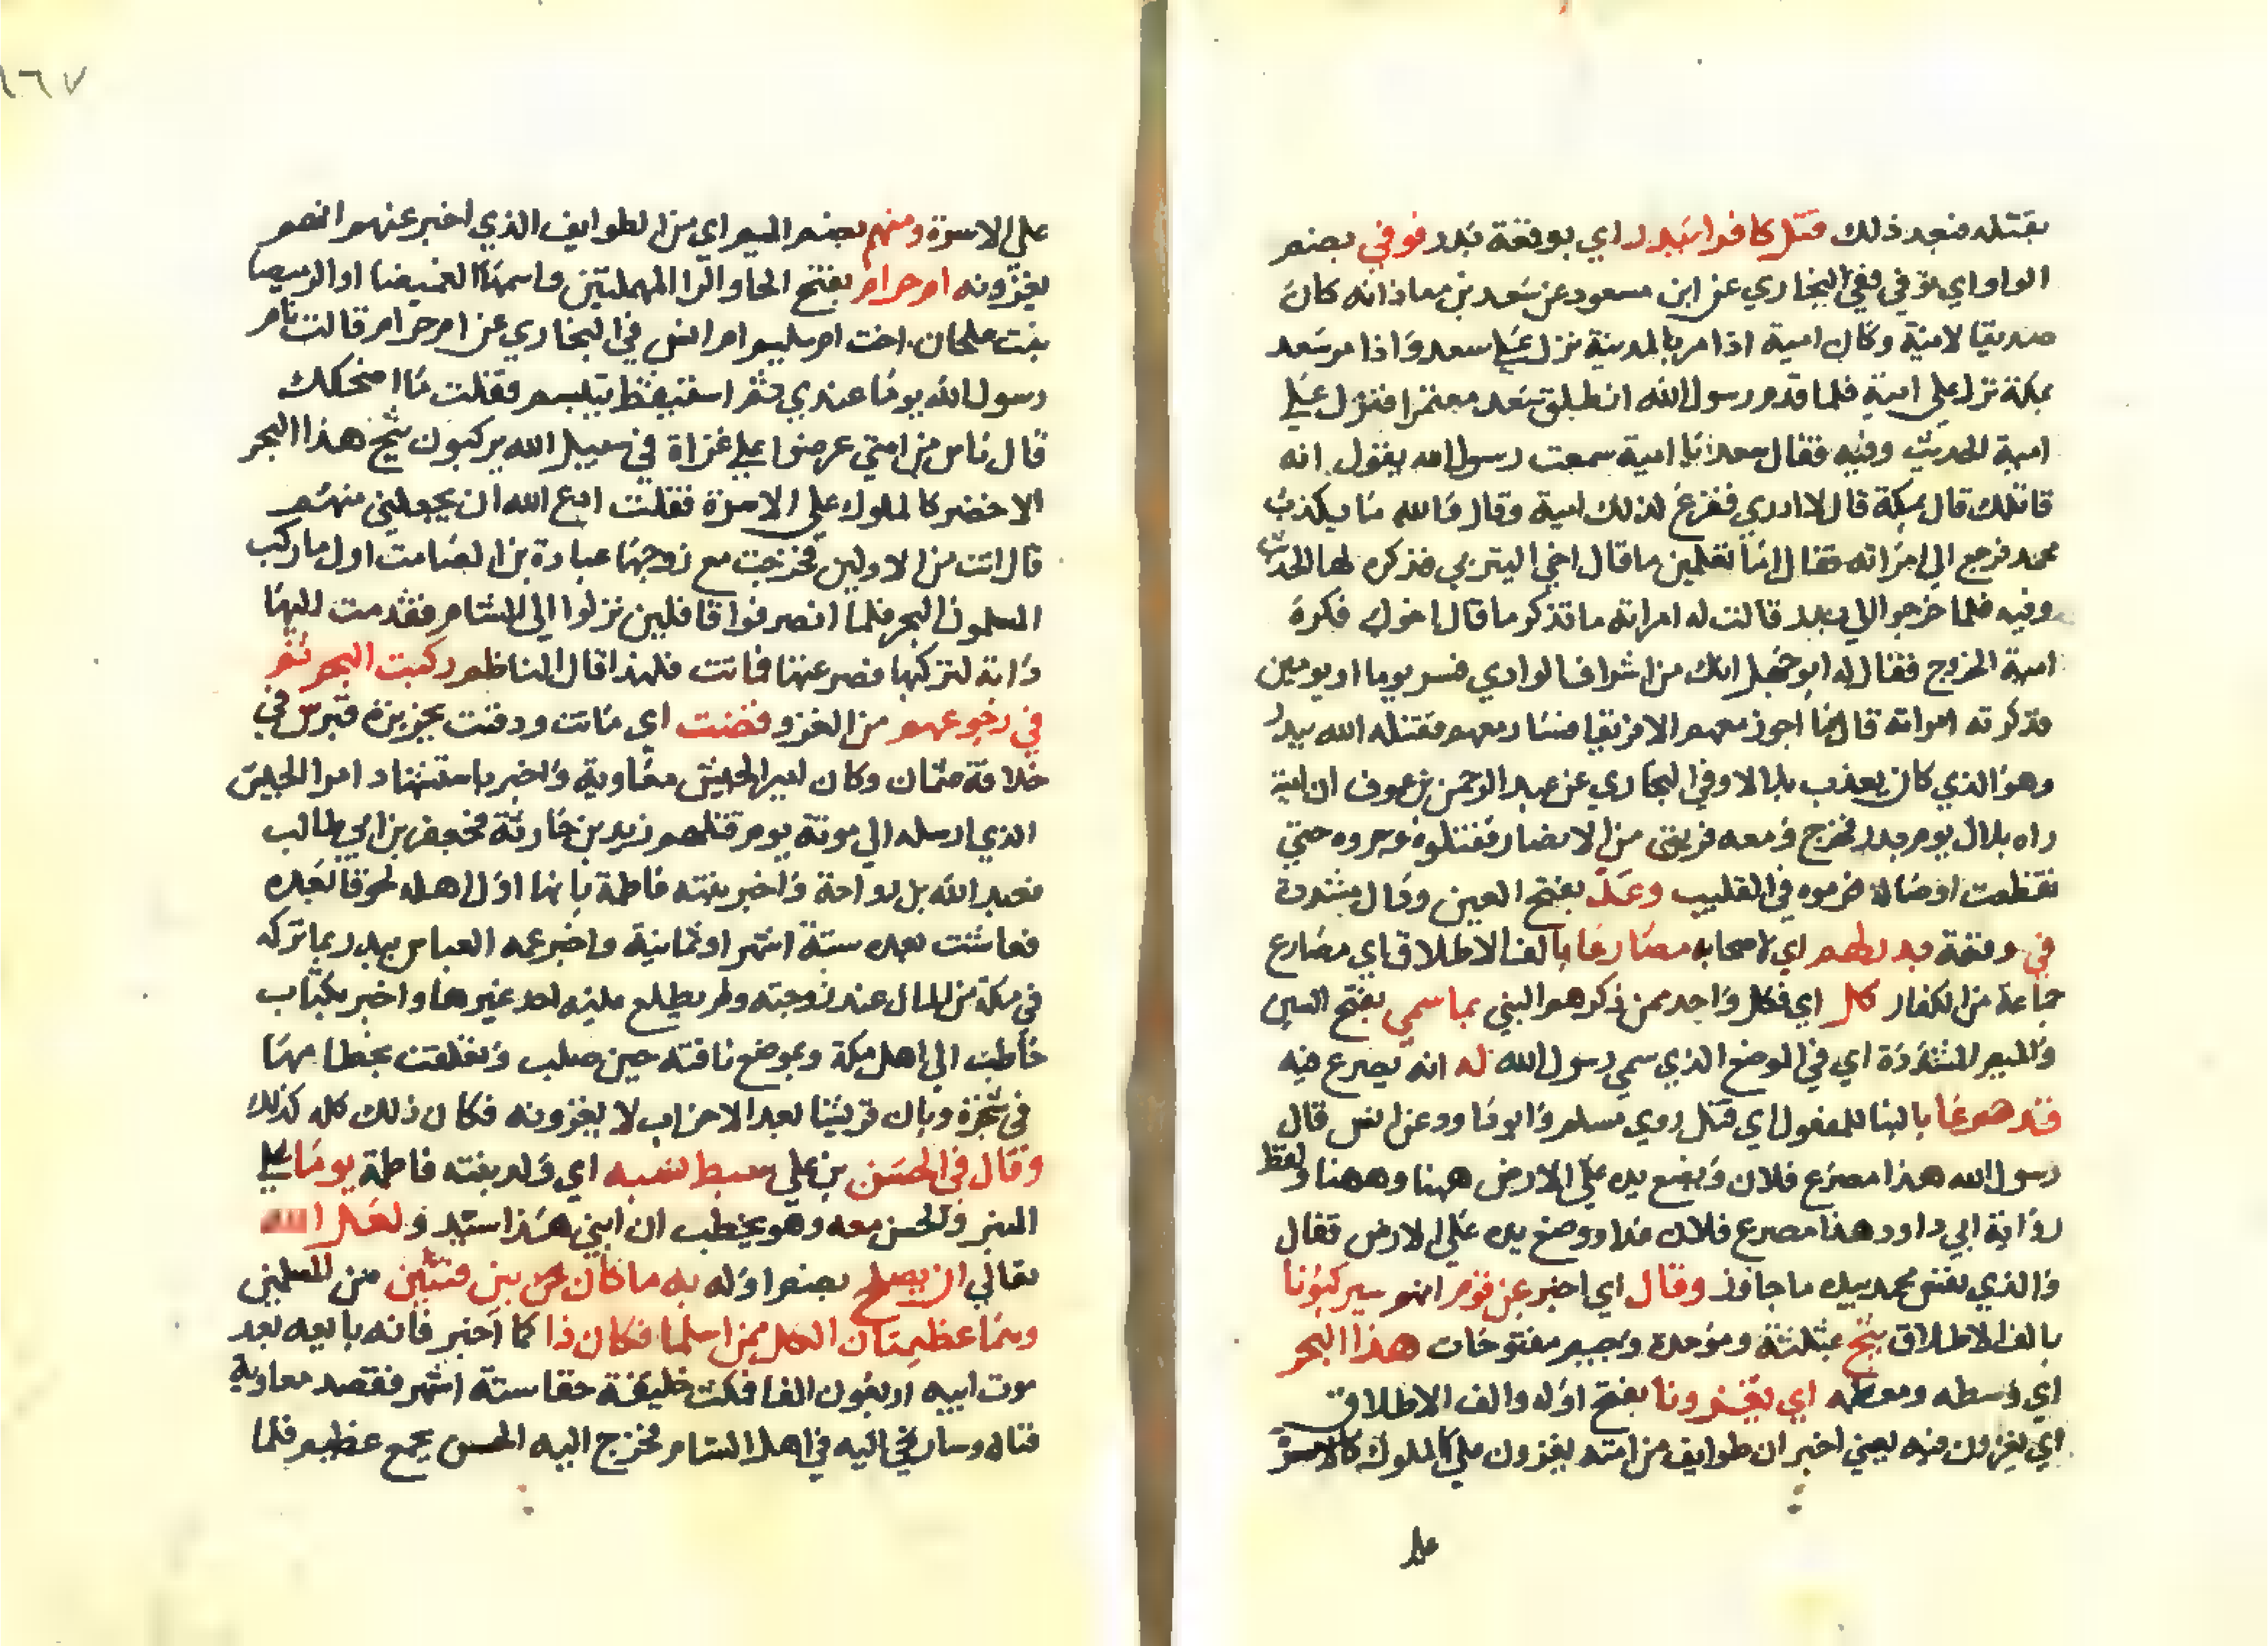 بقتله فبعد ذلك قتل كافرا ببدر اي بوقعة بدر فوفي بضم
الواو اي توفي ففي البخاري عن ابن مسعود عن سعد بن معاذ انه كان
صديقا لامية وكان امية اذا مر بالمدينة نزل على سعد واذا مر سعد
بمكة نزل على امية فلما قدم رسول الله انطلق سعد معتمرا فنزل على
امية الحديث وفيه فقال سعد يا امية سمعت رسول الله يقول انه
قاتلك قال بمكة قال لا ادري ففزع لذلك امية وقال والله ما يكذب
محمد فرجع الى امراته فقال اما تعلمين ما قال اخي اليثربي فذكره لها الحديث
وفيه فلما خرجوا الى بدر قالت له امراته ما تذكر ما قال اخوك فكره
امية الخروج فقال له ابو جهل انك من اشراف الوادي فسر يوما او يومين
فذكرته امراته قال ما اجوز معهم الا قريبا فسار معهم فقتله الله ببدر
وهو الذي كان يعذب بلالا وفي البخاري عن عبد الرحمن بن عوف ان امية
راه بلال يوم بدر فخرج ومعه فريق من الانصار فقتلوه وجروه حتى
تقطعت اوصاله فرموه في القليب وعد بفتح العين وقال مشددة
في وقعة بدر لهم اي لاصحابه مصارعا بالف الاطلاق اي مصارع
جماعة من الكفار كل اي فكل واحد ممن ذكر هو النبي بما سمي بفتح السين
والميم المشددة اي في الموضع الذي سمى رسول الله له انه يصرع فيه
قد هوعا بالبنا للمفعول اي قتل روى مسلم وابو داوود عن انس قال
رسول الله هذا مصرع فلان ويضع يده على الارض ههنا وههنا ولفظ
رواية ابي داوود هذا مصرع فلان غدا ووضع يده على الارض فقال
والذي نفس محمد بيده ما جاوز وقال اي اخبر عن قوم انهم سيركبونا
بالف الاطلاق ثبج بمثلثة وموحدة وبجيم مفتوحات هذا البحر
اي وسطه ومعظمه اي يغزونا بفتح اوله والف الاطلاق
اي يغزون فيه يعني اخبر ان طوايف من امته يغزون على كالملوك على الاسرة
على
١٦٧
على الاسرة ومنهم بضم الميم اي من الطوايف الذي اخبر عنهم انهم
يغزونه ام حرام بفتح الحا والرا المهملتين واسمها الغميصا او الرميصا
بنت ملحان اخت ام سليم ام انس في البخاري عن ام حرام قالت نام
رسول الله يوما عندي ثم استيقظ يتبسم فقلت ما اضحكك
قال ناس من امتي عرضوا علي غزاة في سبيل الله يركبون ثبج هذا البحر
الاخضر كالملوك على الاسرة فقلت ادع الله ان يجعلني منهم
قال انت من الاولين فخرجت مع زوجها عبادة بن الصامت اول ما ركب
المسلمون البحر فلما انصرفوا قافلين نزلوا الى الشام فقدمت اليها
دابة لتركبها فصرعتها فماتت فلهذا قال الناظم ركبت البحر ثم
في رجوعهم من الغزو قضت اي ماتت ودفنت بجزيرة قبرس في
خلافة عثمان وكان امير الجيش معاوية واخبر باستشهاد امرا الجيش
الذي ارسله الى موتة يوم قتلهم زيد بن حارثة فجعفر بن ابي طالب
فعبد الله بن رواحة واخبر بنته فاطمة بانها اول اهله لحوقا بعده
فعاشت بعده ستة اشهر او ثمانية واخبر عمه العباس ببدر بما تركه
في مكة من المال عند زوجته ولم يطلع عليه احد غيرها واخبر بكتاب
حاطب الى اهل مكة وبموضع ناقته حين ضلت وتعلقت بخطامها
في شجرة وبان قريشا بعد الاحزاب لا يغزونه فكان ذلك كله كذلك
وقال في الحسن بن علي سبط نسبه اي ولد بنته فاطمة يوما على
المنبر والحسن معه وهو يخطب ان ابني هذا سيد ولعل الله
تعالى ان يصلح بضم اوله به ما كان من بين فئتين من المسلمين
وهما عظيمتان الكل ممن اسلما فكان ذا كما اخبر فانه بايعه بعد
موت ابيه اربعون الفا فمكث خليفة حقا ستة اشهر فقصد معاوية
قتاله وسار اليه في اهل الشام فخرج اليه الحسن بجمع عظيم فلما